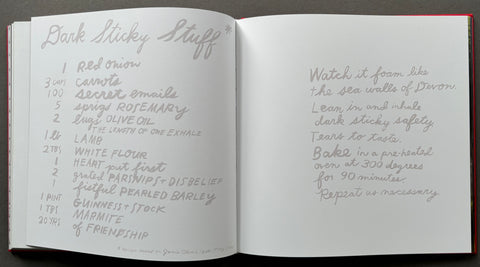 Dark Sticky Stuff*
1 Red onion
3 cups carrots
100 secret emails
5 sprigs ROSEMARY
2 lugs OLIVE OIL
THE LENGTH OF ONE EXHALE
1 lb LAMB
2 TBS WHITE FLOUR
1 HEART put first
2 grated PARSNIPS + DISBELIEF
1 fistful PEARLED BARLEY
1 PINT GUINNESS + STOCK
1 TBS MARMITE
20 YRS of FRIENDSHIP
* recipe based on Jamie
Watch it foam like
the sea walls of Devon.
Lean in and inhale
dark sticky safety
Tears to taste.
Bake in a pre-heated
oven at 300 degrees
for 90 minutes
Repeat as necessary